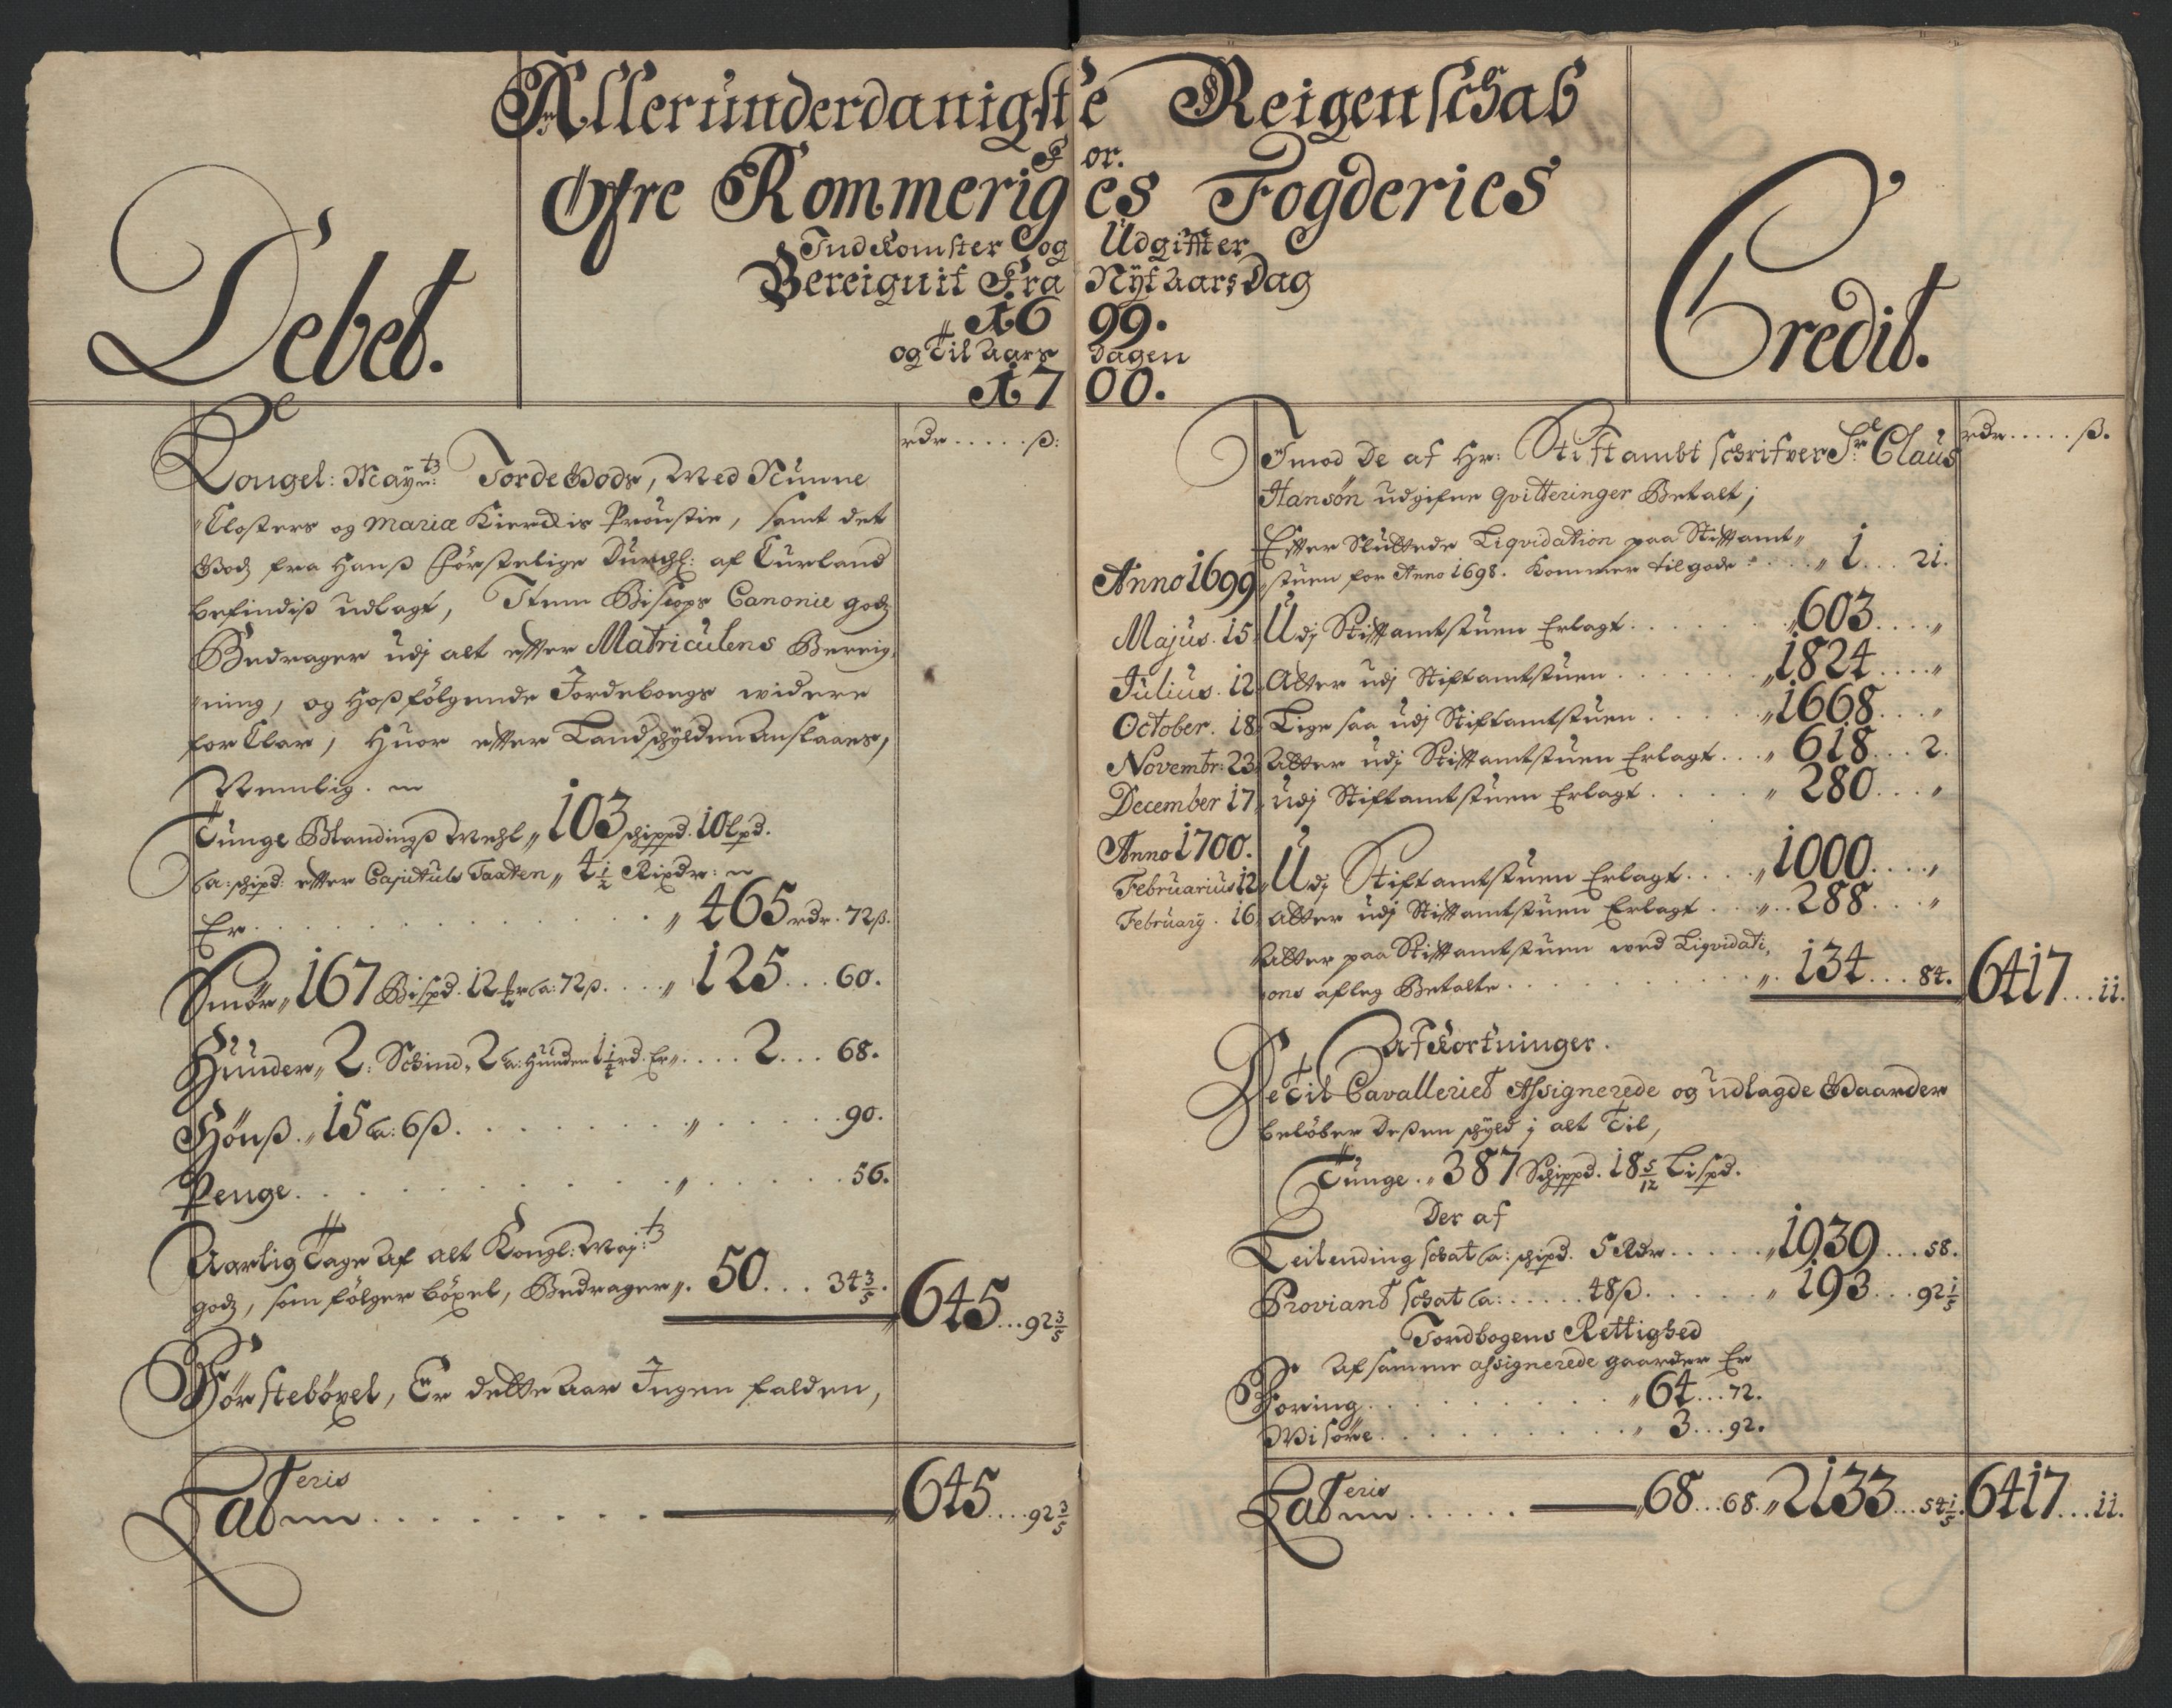 Allerunderdanigste Reigenschab
For.
Øfre Rommeriges Fogderies
Indkomster og Udgiffter
Bereignit Fra Nÿt Aars Dag
1699.
og Til Aars dagen
1700.
Debet.
rdr.....ß:
Kongel: Mayts: Jorde Gods, Med Nunne
Closters og Mariæ Kierckis Proustie, samt det
Godz fra Hanß Førstelige Durchl: af Curland
befindiß udlagt, Item Biscops Canonie godz
Bedrager udj alt efter Matriculens Bereig,
ning, og Hoßfølgende Jordebougs widere
forClar, Huor effter Landschÿlden Anslaaes,
Nemlig.
Tunge Blandingß Mehl 103 schippd. 10 Lpd.
a: schipd: effter Capituls Taxten 4 1/2 Rixdr:
Er . . . . . 465 rdr. 72ß.
Smør 167 Bispd. 12 mr a: 72ß. . . . 125... 60.
Huuder 2: Schind 2 a: Huuden 1 1/4 rd. Er . . . . 2... 68.
Hønß. 15 a: 6ß. . . . . . 90.
Penge. . . . . . 56.
Aarlig Tage Af alt Kongl: Maj:ts
godz, som følger böxel, Bedrager 50... 34 3/5. 645...92 3/5
Førstebøxel, Er dette Aar Ingen falden,
Lateris . . . . . 645....92 3/5
Credit.
rdr.....ß.
Imod De af Hr: Stiftambt schrifver Sr. Claus
Hansøn udgifne qvitteringer Betalt;
Effter Sluttede Liqvidation paa Stiftamt
Anno 1699 stuen for Anno 1698. Kommer tilgode . . . 1... 21.
Majus. 15. Udj Stiftamtstuen Erlagt. . . . . 603....
Julius. 12. Atter udj Stiftamtstuen . . . . . 1824....
October. 18. Lige saa udj Stiftamtstuen . . . . 1668....
Novembr: 23. Atter udj Stiftamtstuen Erlagt. . . 618... 2.
December 17. udj Stiftamtstuen Erlagt . . . . 280....
Anno 1700.
Februarius 12. Udj Stiftamtstuen Erlagt. . . . 1000....
Februarÿ. 16. Atter udj Stiftamtstuen Erlagt . . . 288...
Atter paa Stiftamtstuen wed Liqvidati,
ons afleg Betalte . . . . . . 134... 84. 6417...11.
Afkortninger.
De Til Cavalleriet Assignerede og udlagde Gaarder
beløber deßen schÿld i alt Til,
Tunge. 387 Schippd. 18 5/12 Lispd.
Der af
Leilending schat a: schipd. 5 Rdr. . . . . 1939... 58.
Proviant schat a: . . . . 48ß. . . . . 193... 92 1/5
Jordbogens Rettighed
Af samme assignerede gaarder Er
Foring . . . . . . 64...72.
Wisøre . . . . . . 3...92.
Lateris . . . . . 68...68. 2133...54 1/5. 6417...11.